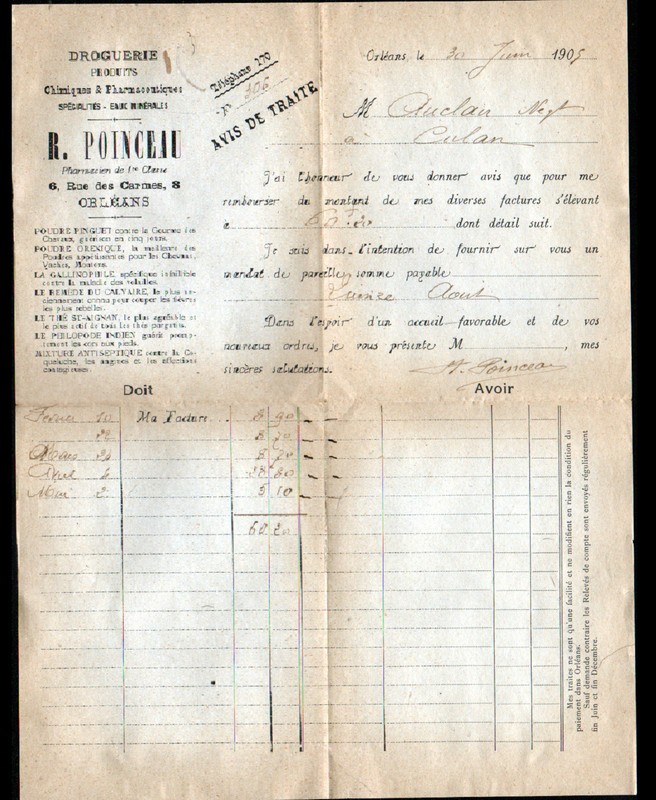 DROGUERIE
PRODUITS
Chimiques & Pharmaceutiques
SPÉCIALITÉS - EAUX MINÉRALES
R. POINCEAU
Pharmacien de 1re Classe
6, Rue des Carmes, 8
ORLÉANS
POUDRE PINGUET contre la Gourme des
Chevaux, guérison en cinq jours.
POUDRE ORENIQUE, la meilleure des
Poudres appétissantes pour les Chevaux,
Vaches, Moutons.
LA GALLINOPHILE spécifique infaillible
contre la maladie des volailles.
LE REMÈDE DU CALVAIRE, le plus
connu pour couper les fièvres
les plus rebelles.
LE THÉ ST-AIGNAN, le plus agréable et
le plus actif de tous les thés purgatifs.
LE PHILOPODE INDIEN guérit
les cors aux pieds.
MIXTURE ANTISEPTIQUE contre la Co-
queluche, les angines et les affections
contagieuses.
Téléphone 170
N° 306
AVIS DE TRAITE
Orléans, le 30 Juin 1905
M Auclair Negt
à Culan
J'ai l'honneur de vous donner avis que pour me
rembourser du montant de mes diverses factures s'élevant
à 60 f 20 dont détail suit.
Je suis dans l'intention de fournir sur vous un
mandat de pareille somme payable
Quinze Aout
Dans l'espoir d'un accueil favorable et de vos
nouveaux ordres, je vous présente M , mes
sincères salutations.
Poinceau
Doit Avoir
Février 10 Ma Facture 90
Mars
Avril
Mai 2 10
60 20
Mes traites ne sont qu'une facilité et ne modifient en rien la condition du
paiement dans Orléans.
Sauf demande contraire les Relevés de compte sont envoyés régulièrement
fin Juin et fin Décembre.